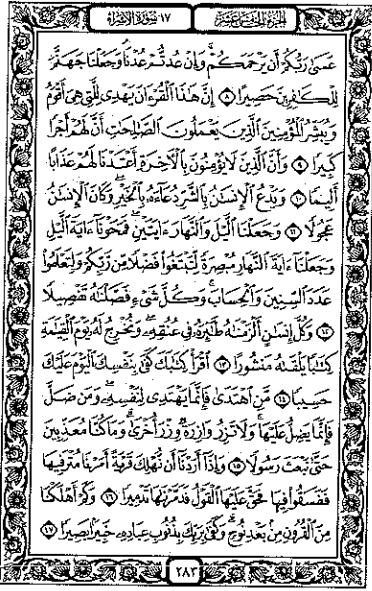 الجزء الخامس عشر
١٧ سورة الإسراء
عَسَىٰ رَبُّكُمْ أَن يَرْحَمَكُمْ وَإِنْ عُدتُّمْ عُدْنَا وَجَعَلْنَا جَهَنَّمَ
لِلْكَٰفِرِينَ حَصِيرًا ٨ إِنَّ هَٰذَا ٱلْقُرْءَانَ يَهْدِى لِلَّتِى هِىَ أَقْوَمُ
وَيُبَشِّرُ ٱلْمُؤْمِنِينَ ٱلَّذِينَ يَعْمَلُونَ ٱلصَّٰلِحَٰتِ أَنَّ لَهُمْ أَجْرًا
كَبِيرًا ٩ وَأَنَّ ٱلَّذِينَ لَا يُؤْمِنُونَ بِٱلْءَاخِرَةِ أَعْتَدْنَا لَهُمْ عَذَابًا
أَلِيمًا ١٠ وَيَدْعُ ٱلْإِنسَٰنُ بِٱلشَّرِّ دُعَآءَهُۥ بِٱلْخَيْرِ وَكَانَ ٱلْإِنسَٰنُ
عَجُولًا ١١ وَجَعَلْنَا ٱلَّيْلَ وَٱلنَّهَارَ ءَايَتَيْنِ فَمَحَوْنَآ ءَايَةَ ٱلَّيْلِ
وَجَعَلْنَآ ءَايَةَ ٱلنَّهَارِ مُبْصِرَةً لِّتَبْتَغُوا۟ فَضْلًا مِّن رَّبِّكُمْ وَلِتَعْلَمُوا۟
عَدَدَ ٱلسِّنِينَ وَٱلْحِسَابَ وَكُلَّ شَىْءٍ فَصَّلْنَٰهُ تَفْصِيلًا
١٢ وَكُلَّ إِنسَٰنٍ أَلْزَمْنَٰهُ طَٰٓئِرَهُۥ فِى عُنُقِهِۦ وَنُخْرِجُ لَهُۥ يَوْمَ ٱلْقِيَٰمَةِ
كِتَٰبًا يَلْقَىٰهُ مَنشُورًا ١٣ ٱقْرَأْ كِتَٰبَكَ كَفَىٰ بِنَفْسِكَ ٱلْيَوْمَ عَلَيْكَ
حَسِيبًا ١٤ مَّنِ ٱهْتَدَىٰ فَإِنَّمَا يَهْتَدِى لِنَفْسِهِۦ وَمَن ضَلَّ
فَإِنَّمَا يَضِلُّ عَلَيْهَا وَلَا تَزِرُ وَازِرَةٌ وِزْرَ أُخْرَىٰ وَمَا كُنَّا مُعَذِّبِينَ
حَتَّىٰ نَبْعَثَ رَسُولًا ١٥ وَإِذَآ أَرَدْنَآ أَن نُّهْلِكَ قَرْيَةً أَمَرْنَا مُتْرَفِيهَا
فَفَسَقُوا۟ فِيهَا فَحَقَّ عَلَيْهَا ٱلْقَوْلُ فَدَمَّرْنَٰهَا تَدْمِيرًا ١٦ وَكَمْ أَهْلَكْنَا
مِنَ ٱلْقُرُونِ مِنۢ بَعْدِ نُوحٍ وَكَفَىٰ بِرَبِّكَ بِذُنُوبِ عِبَادِهِۦ خَبِيرًۢا بَصِيرًا ١٧
٢٨٣